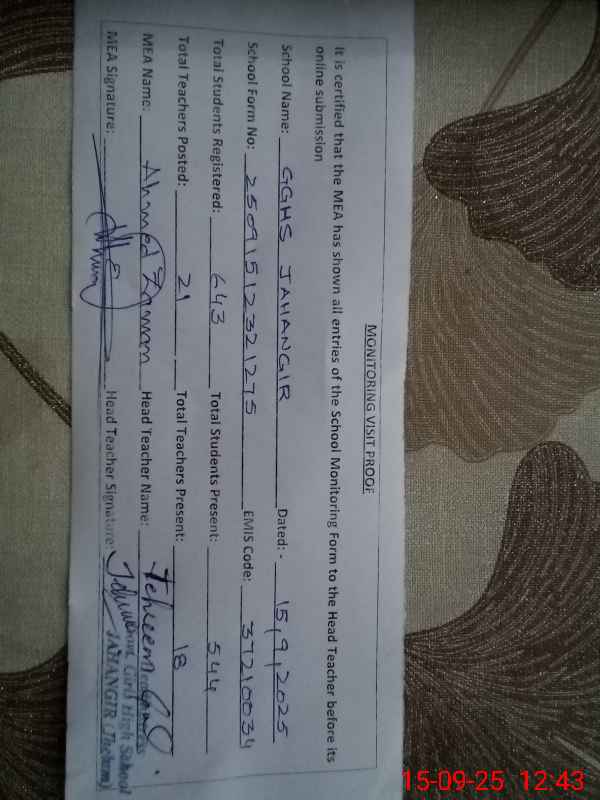 MONITORING VISIT PROOF
It is certified that the MEA has shown all entries of the School Monitoring Form to the Head Teacher before its
online submission
School Name: GGHS JAHANGIR Dated: - 15,9,2025
School Form No: 25091512321275 EMIS Code: 37210034
Total Students Registered: 643 Total Students Present: 544
Total Teachers Posted: 21 Total Teachers Present: 18
MEA Name: Ahmed Zaman Head Teacher Name: Tehreem
MEA Signature: Head Teacher Signature:
Girls High School
JAHANGIR (Jhelum)
15-09-25 12:43